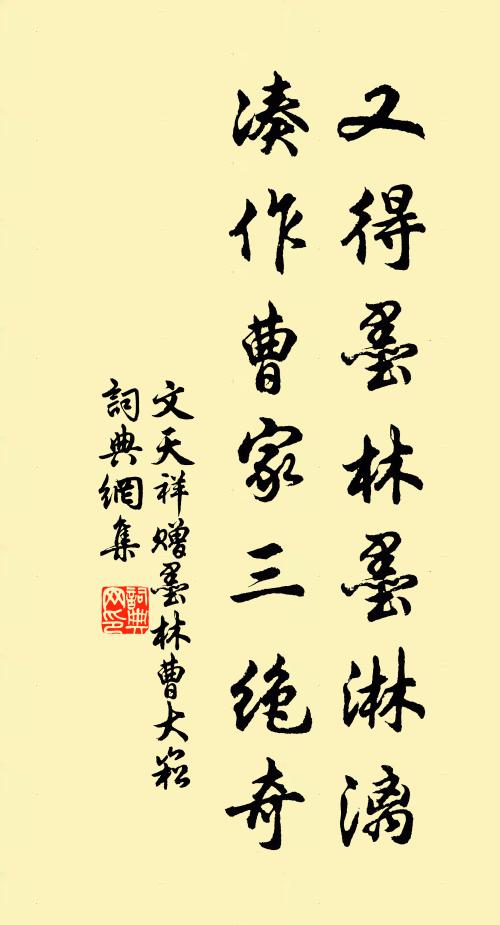 又得墨林墨淋漓
凑作曹家三绝奇
文天祥赠墨林曹大崧
詞典網集
詞典网印